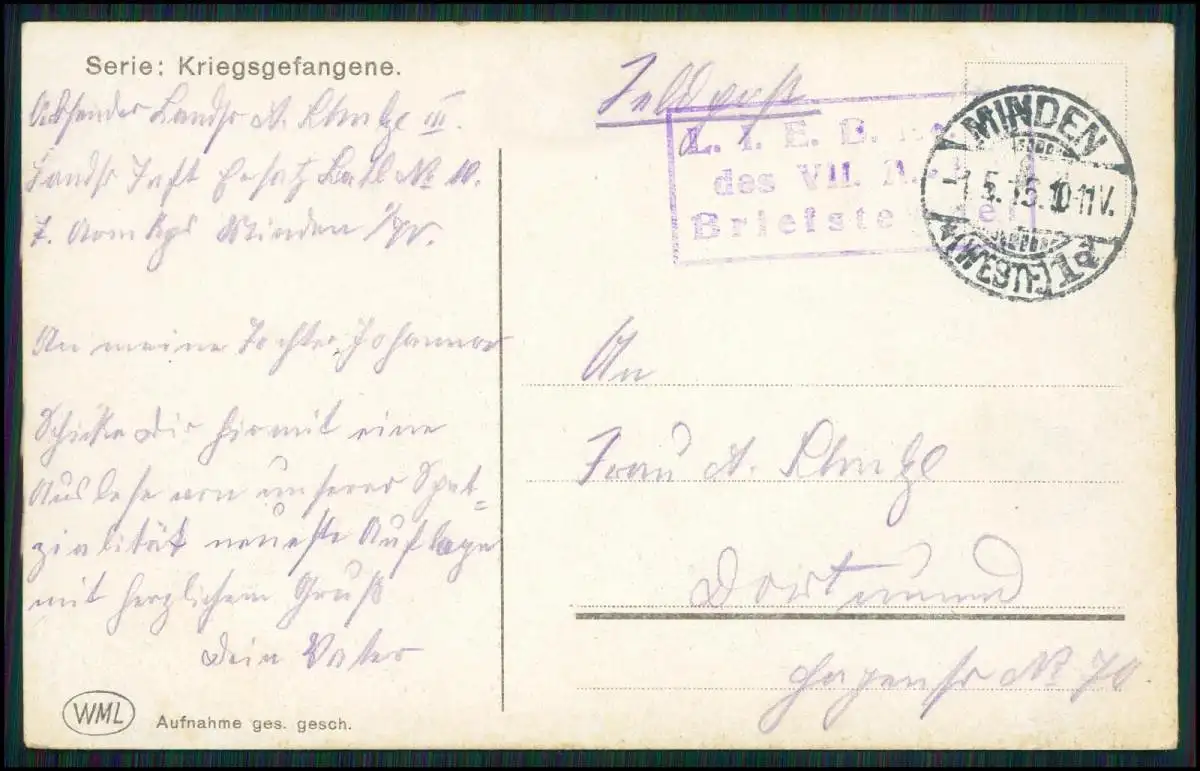 Serie: Kriegsgefangene.
Absender Landst. A.
Landst Inft Ersatz Batl No 10.
7. Armkps Minden i/W.
An meine Tochter Johanna
Schicke Dir hiermit eine
Auslese von unserer Spet=
zialität neueste Auflage
mit herzlichem Gruß
Dein Vater
WML
Aufnahme ges. gesch.
Feldpost
L. I. E. B.
des VII.
Briefste
MINDEN
5. 15. 10-11V.
(WESTF.)
An
Frau A.
Dortmund
Hagenstr No 70